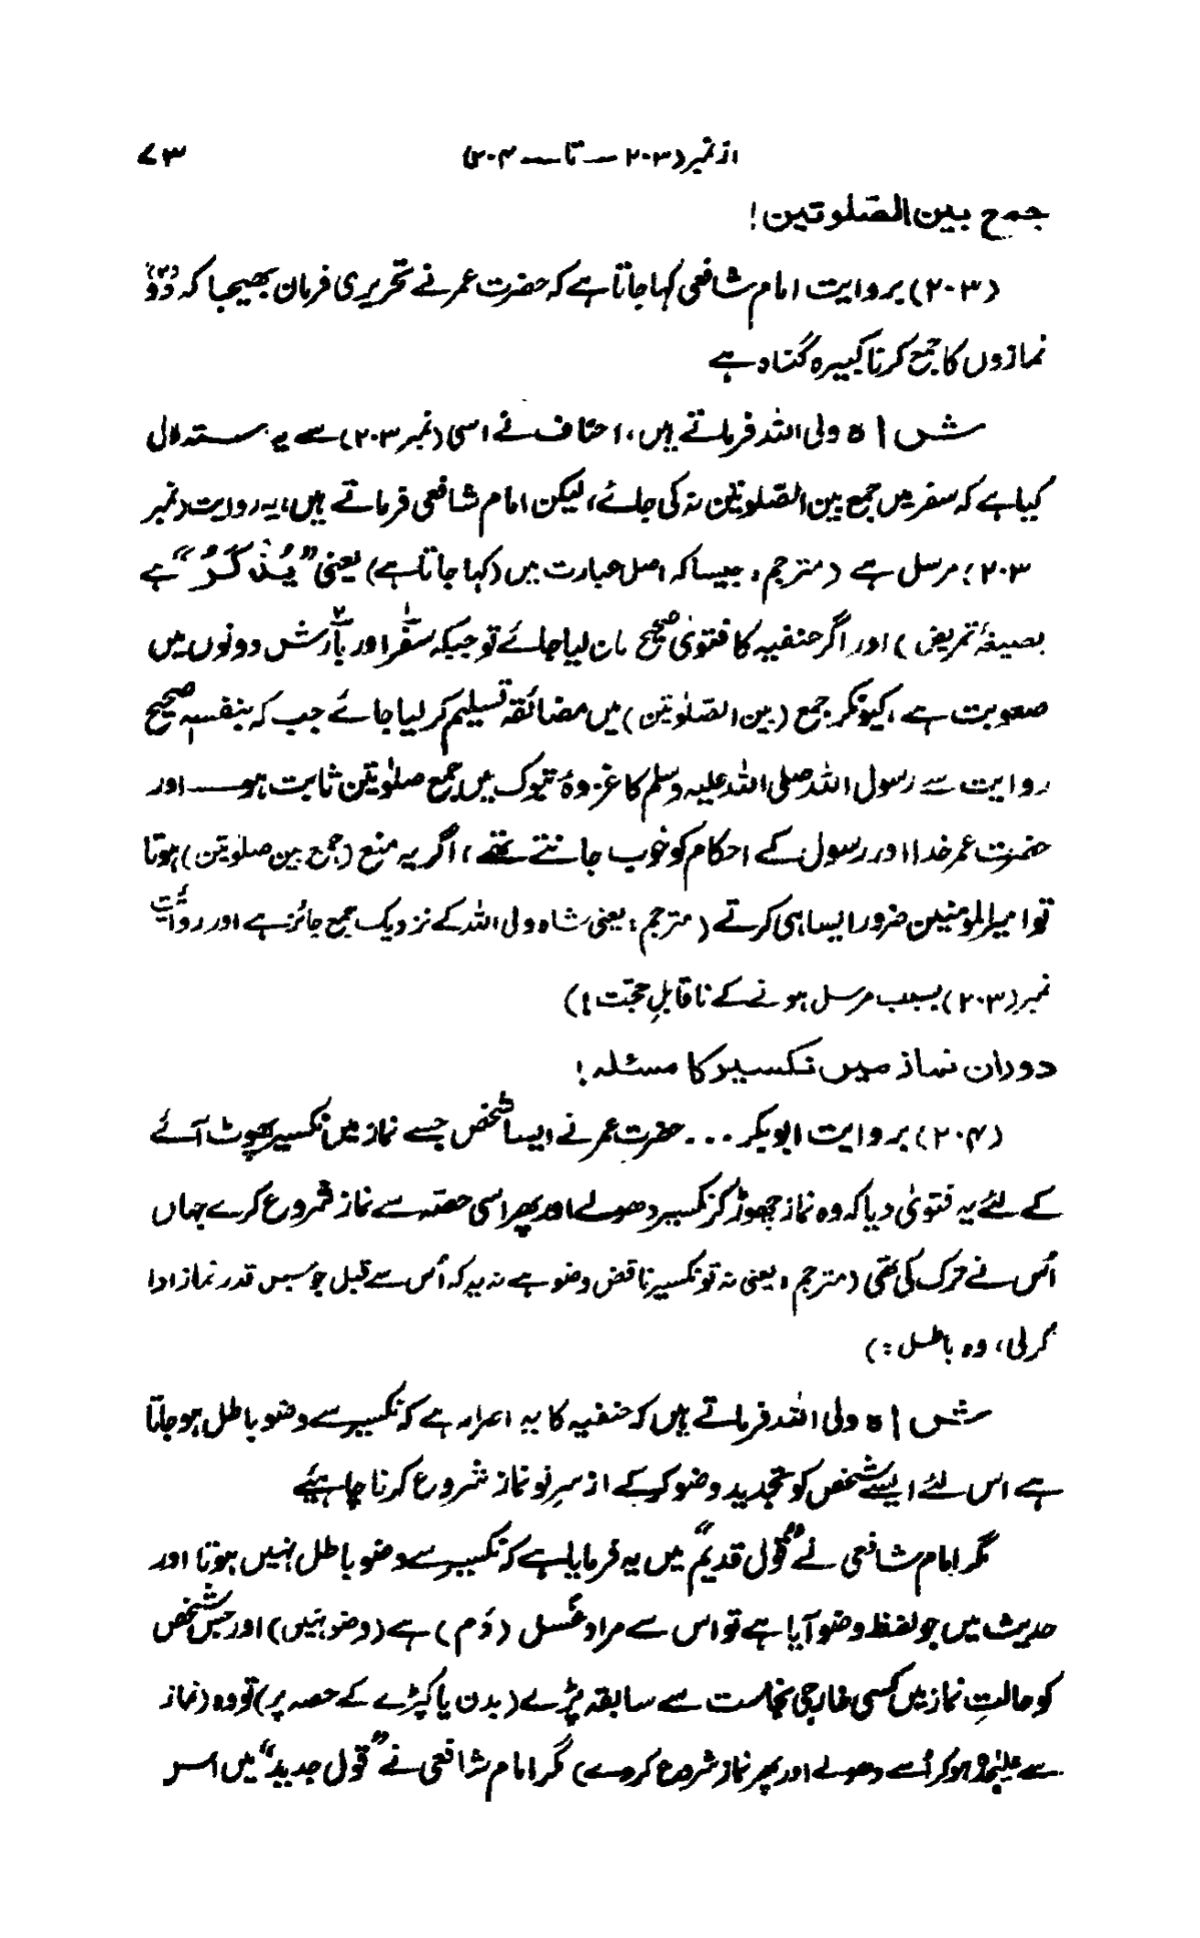 از نمبر (۲۰۳ — تا — ۲۰۴) ۷۳
جمع بین الصّلوتین!
(۲۰۳) بروایت امام شافعی کہا جاتا ہے کہ حضرت عمر نے تحریری فرمان بھیجا کہ دَوْ (۲)
نمازوں کا جمع کرنا کبیرہ گناہ ہے
شاہ ولی اللہ فرماتے ہیں، احناف نے اسی (نمبر ۲۰۳) سے یہ استدلال
کیا ہے کہ سفر میں جمع بین الصّلوتین نہ کی جائے، لیکن امام شافعی فرماتے ہیں، یہ روایت (نمبر
۲۰۳) مرسل ہے (مترجم، جیسا کہ اصل عبارت میں (کہا جاتا ہے) یعنی "یُذْکَرُ" ہے
بصیغۂ تمریض) اور اگر حنفیہ کا فتویٰ صحیح مان لیا جائے تو جبکہ سفر۱ اور بارش۲ دونوں میں
صعوبت ہے، کیونکر جمع (بین الصّلوٰتین) میں مضائقہ تسلیم کر لیا جائے جب کہ بنفسہٖ صحیح
روایت سے رسول اللہ صلی اللہ علیہ وسلم کا غزوۂ تبوک میں جمع صلوٰتین ثابت ہو — اور
حضرت عمر خدا اور رسول کے احکام کو خوب جانتے تھے، اگر یہ منع (جمع بین صلوٰتین) ہوتا
تو امیر المؤمنین ضرور ایسا ہی کرتے (مترجم: یعنی شاہ ولی اللہ کے نزدیک جمع جائز ہے اور روایت
نمبر (۲۰۳) بسبب مرسل ہونے کے ناقابلِ حجّت!)
دوران نماز میں نکسیر کا مسئلہ!
(۲۰۴) بروایت ابوبکر ... حضرت عمر نے ایسا شخص جسے نماز میں نکسیر پھوٹ آئے
کے لئے یہ فتویٰ دیا کہ وہ نماز چھوڑ کر نکسیر دھولے اور پھر اسی حصّہ سے نماز شروع کرے جہاں
اُس نے ترک کی تھی (مترجم، یعنی نہ تو نکسیر ناقض وضو ہے نہ یہ کہ اُس سے قبل جو جس قدر نماز ادا
کرلی، وہ باطل :)
شاہ ولی اللہ فرماتے ہیں کہ حنفیہ کا یہ اصرار ہے کہ نکسیر سے وضو باطل ہو جاتا
ہے اس لئے ایسے شخص کو تجدید وضو کر کے از سرِ نو نماز شروع کرنا چاہیئے
مگر امام شافعی نے "قول قدیم" میں یہ فرمایا ہے کہ نکسیر سے وضو باطل نہیں ہوتا اور
حدیث میں جو لفظ وضو آیا ہے تو اس سے مراد غَسل (دَم) ہے (وضو نہیں) اور جس شخص
کو حالتِ نماز میں کسی خارجی نجاست سے سابقہ پڑے (بدن یا کپڑے کے حصہ پر) تو وہ (نماز
سے علیٰحدہ ہو کر اُسے دھولے اور پھر نماز شروع کردے) مگر امام شافعی نے "قول جدید" میں اس